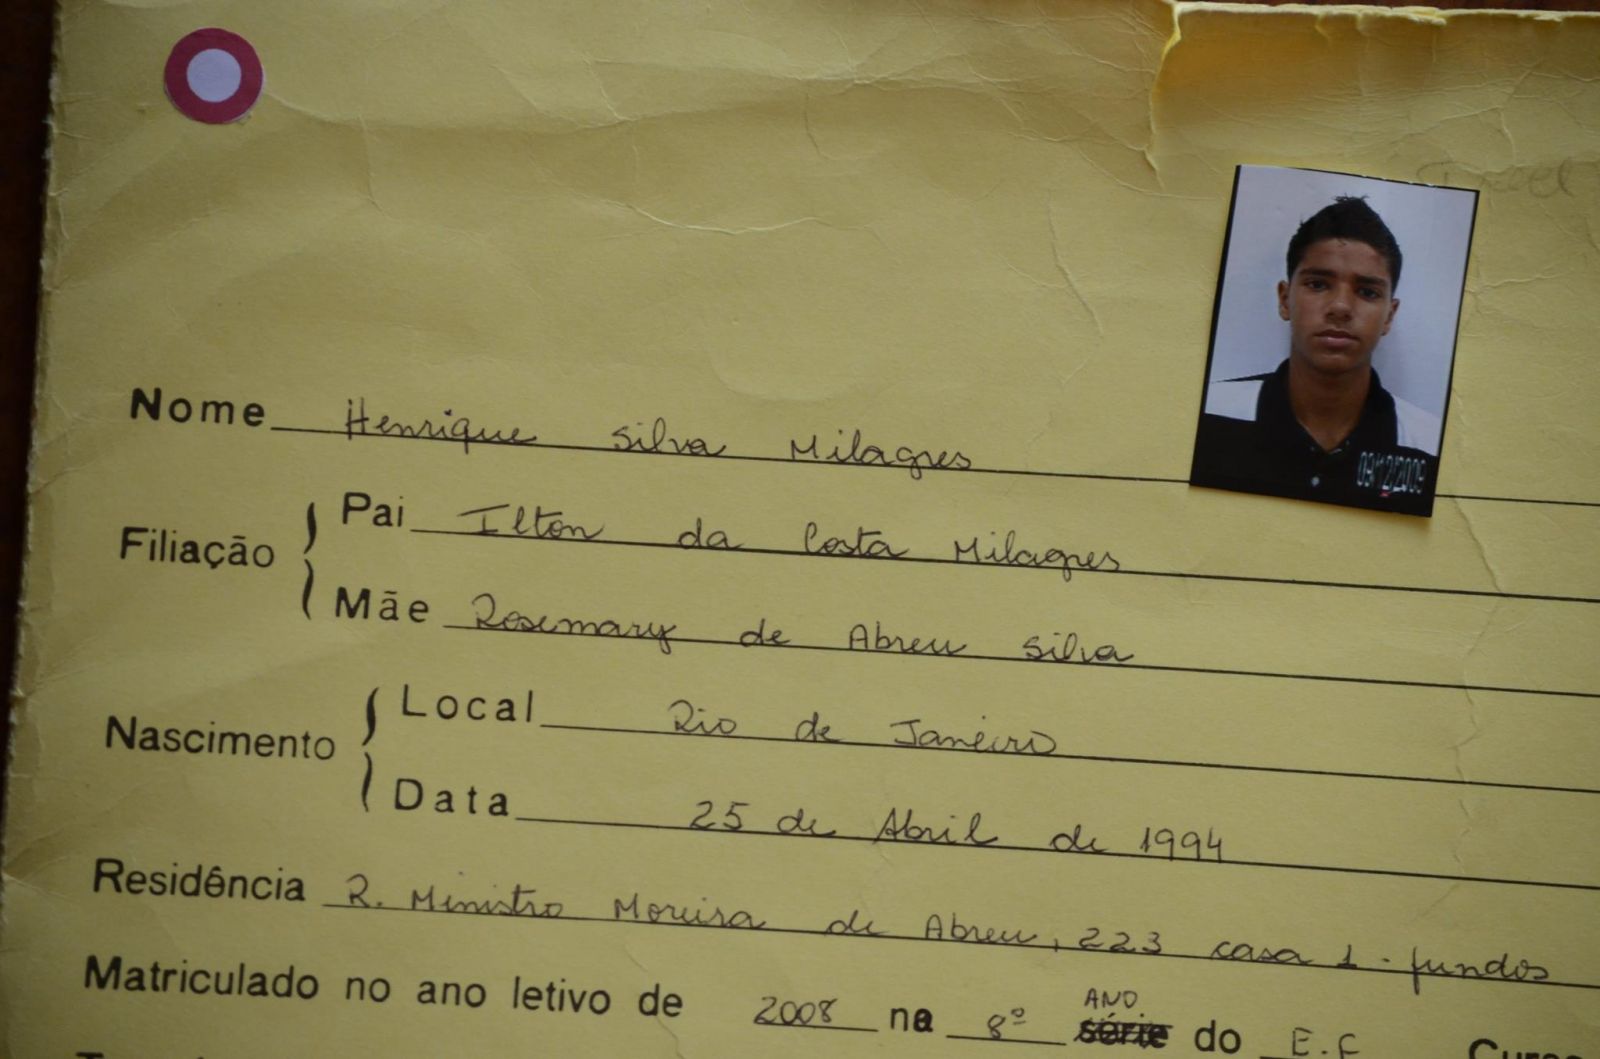 Nome Henrique Silva Milagres
09/12/2009
Filiação
Pai Ilton da Costa Milagres
Mãe Rosemary de Abreu Silva
Nascimento
Local Rio de Janeiro
Data 25 de Abril de 1994
Residência R. Ministro Moreira de Abreu, 223 casa 1 - fundos
ANO
Matriculado no ano letivo de 2008 na 8º série do E.F